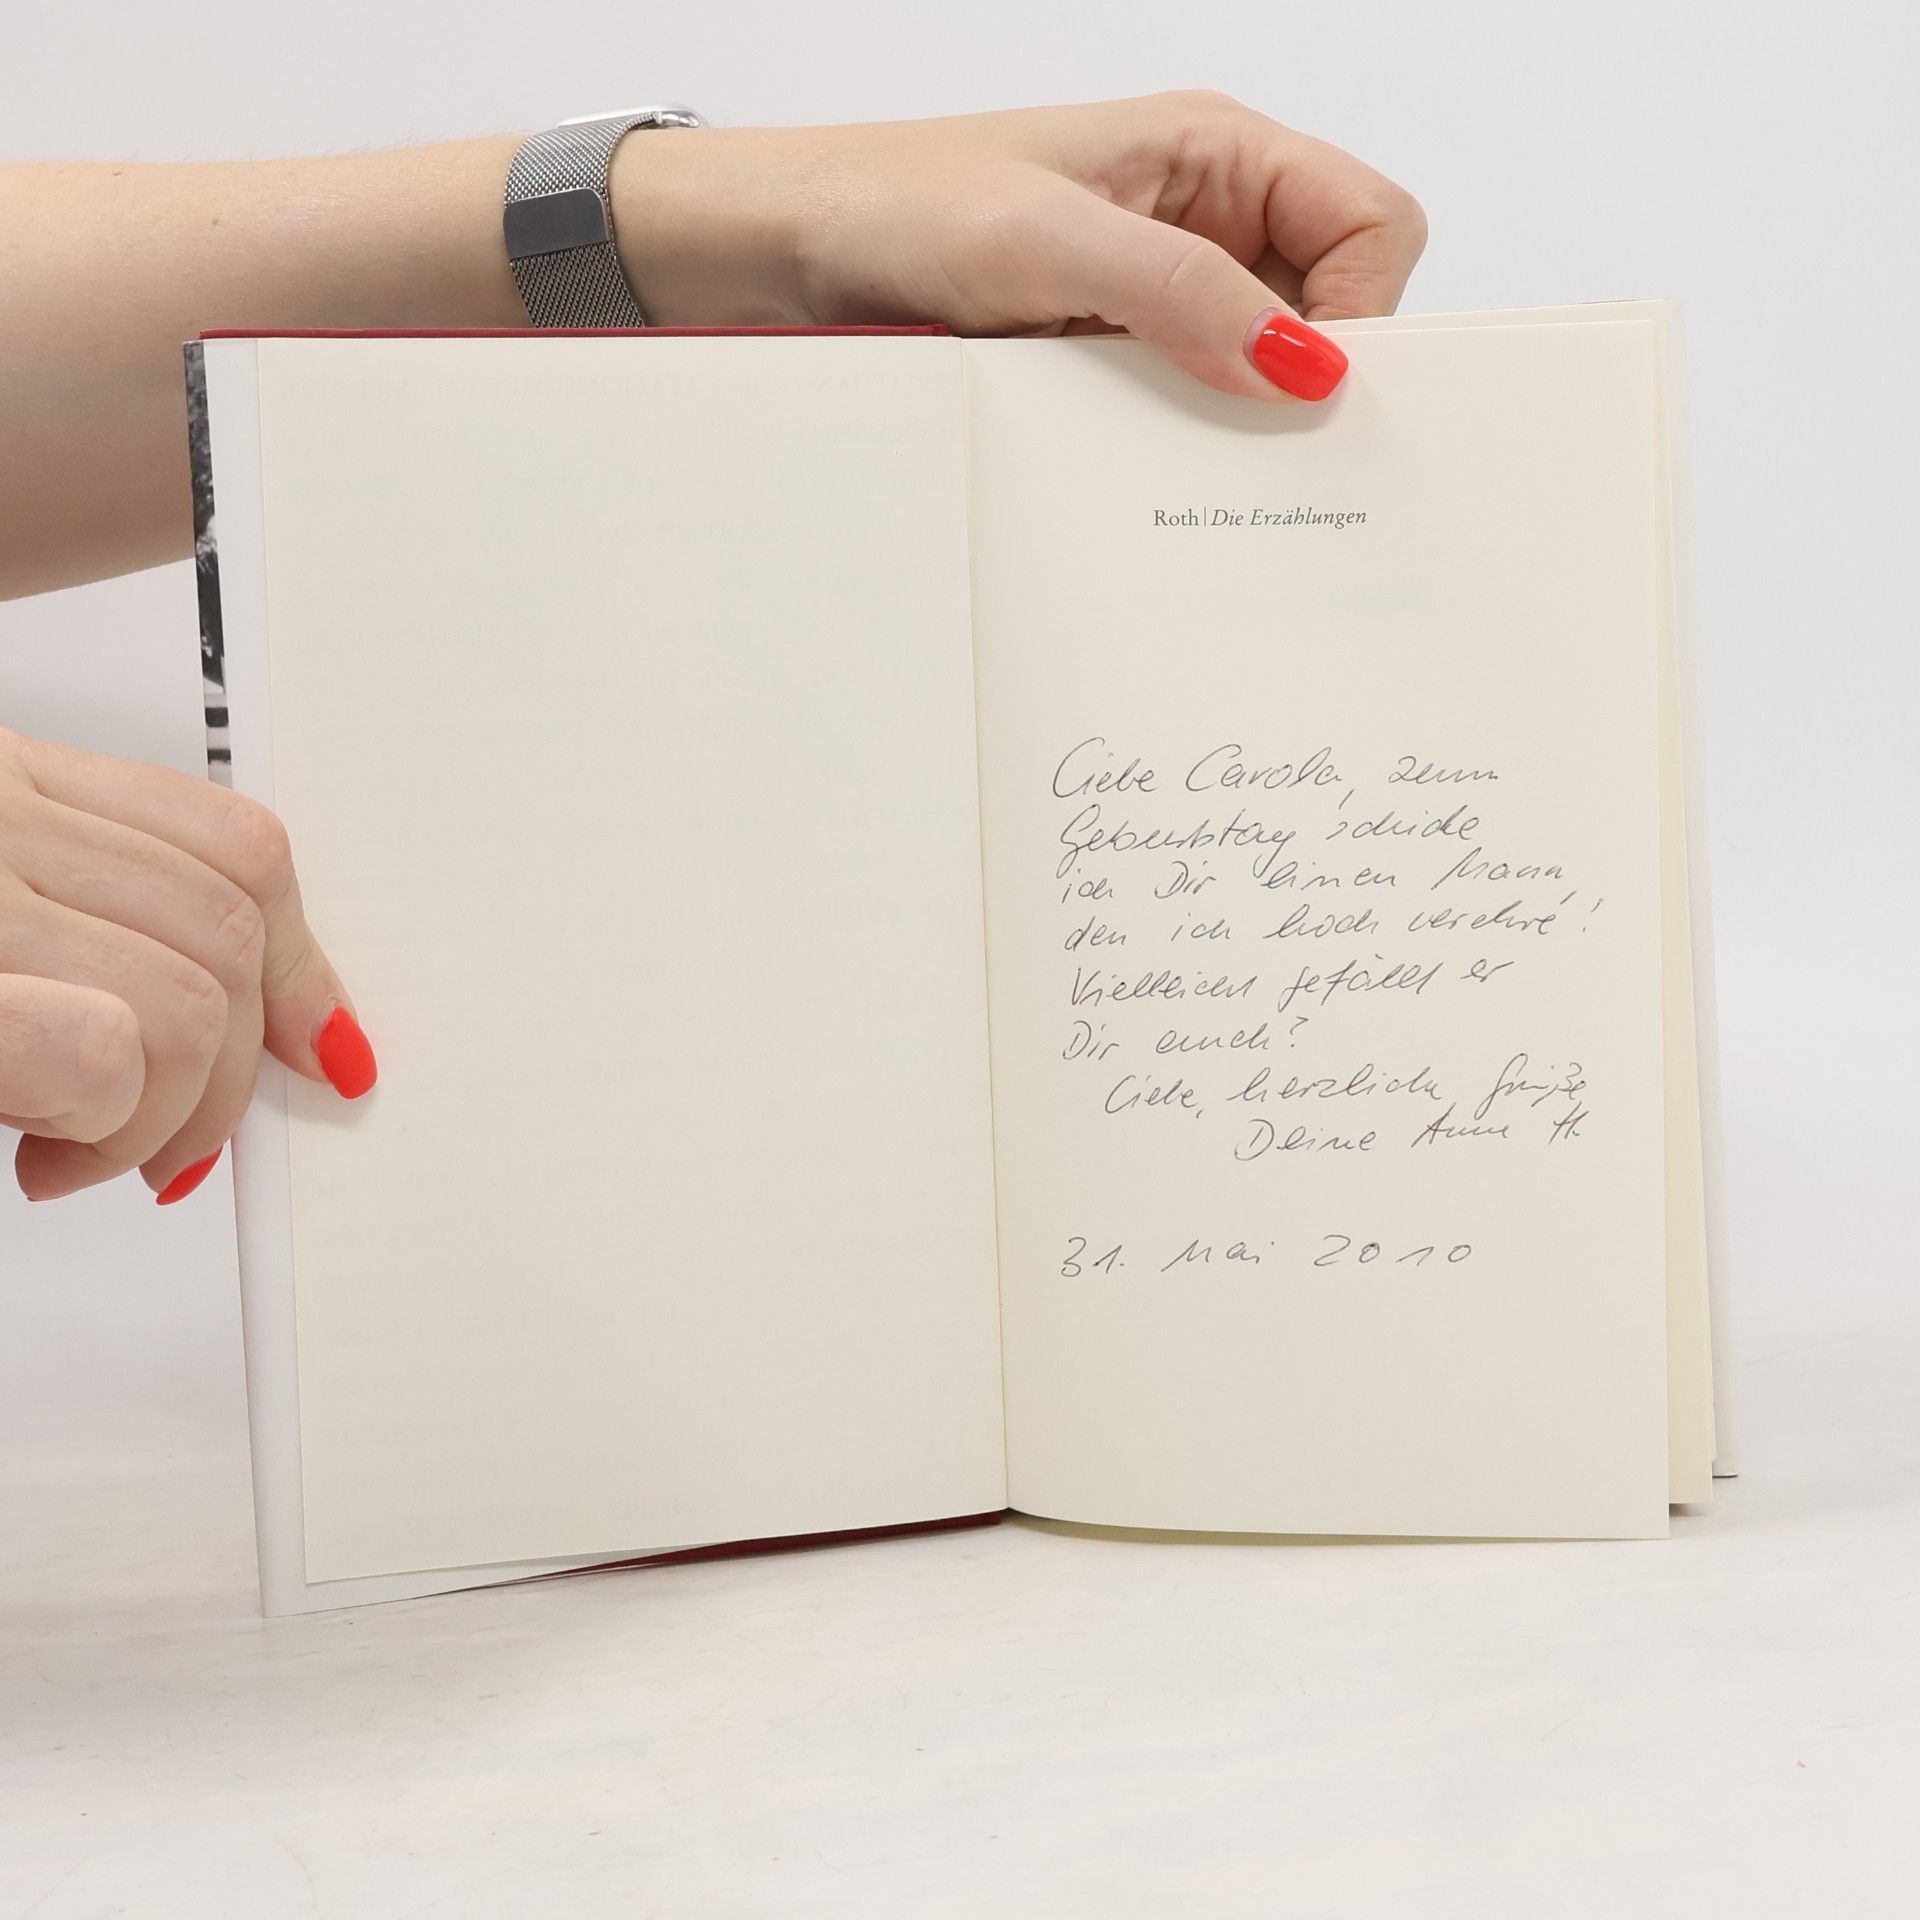 Roth | Die Erzählungen
Liebe Carola, zum
Geburtstag schicke
ich Dir einen Mann,
den ich hoch verehre!
Vielleicht gefällt er
Dir auch?
Liebe, herzliche Grüße,
Deine Anne H.
31. Mai 2010